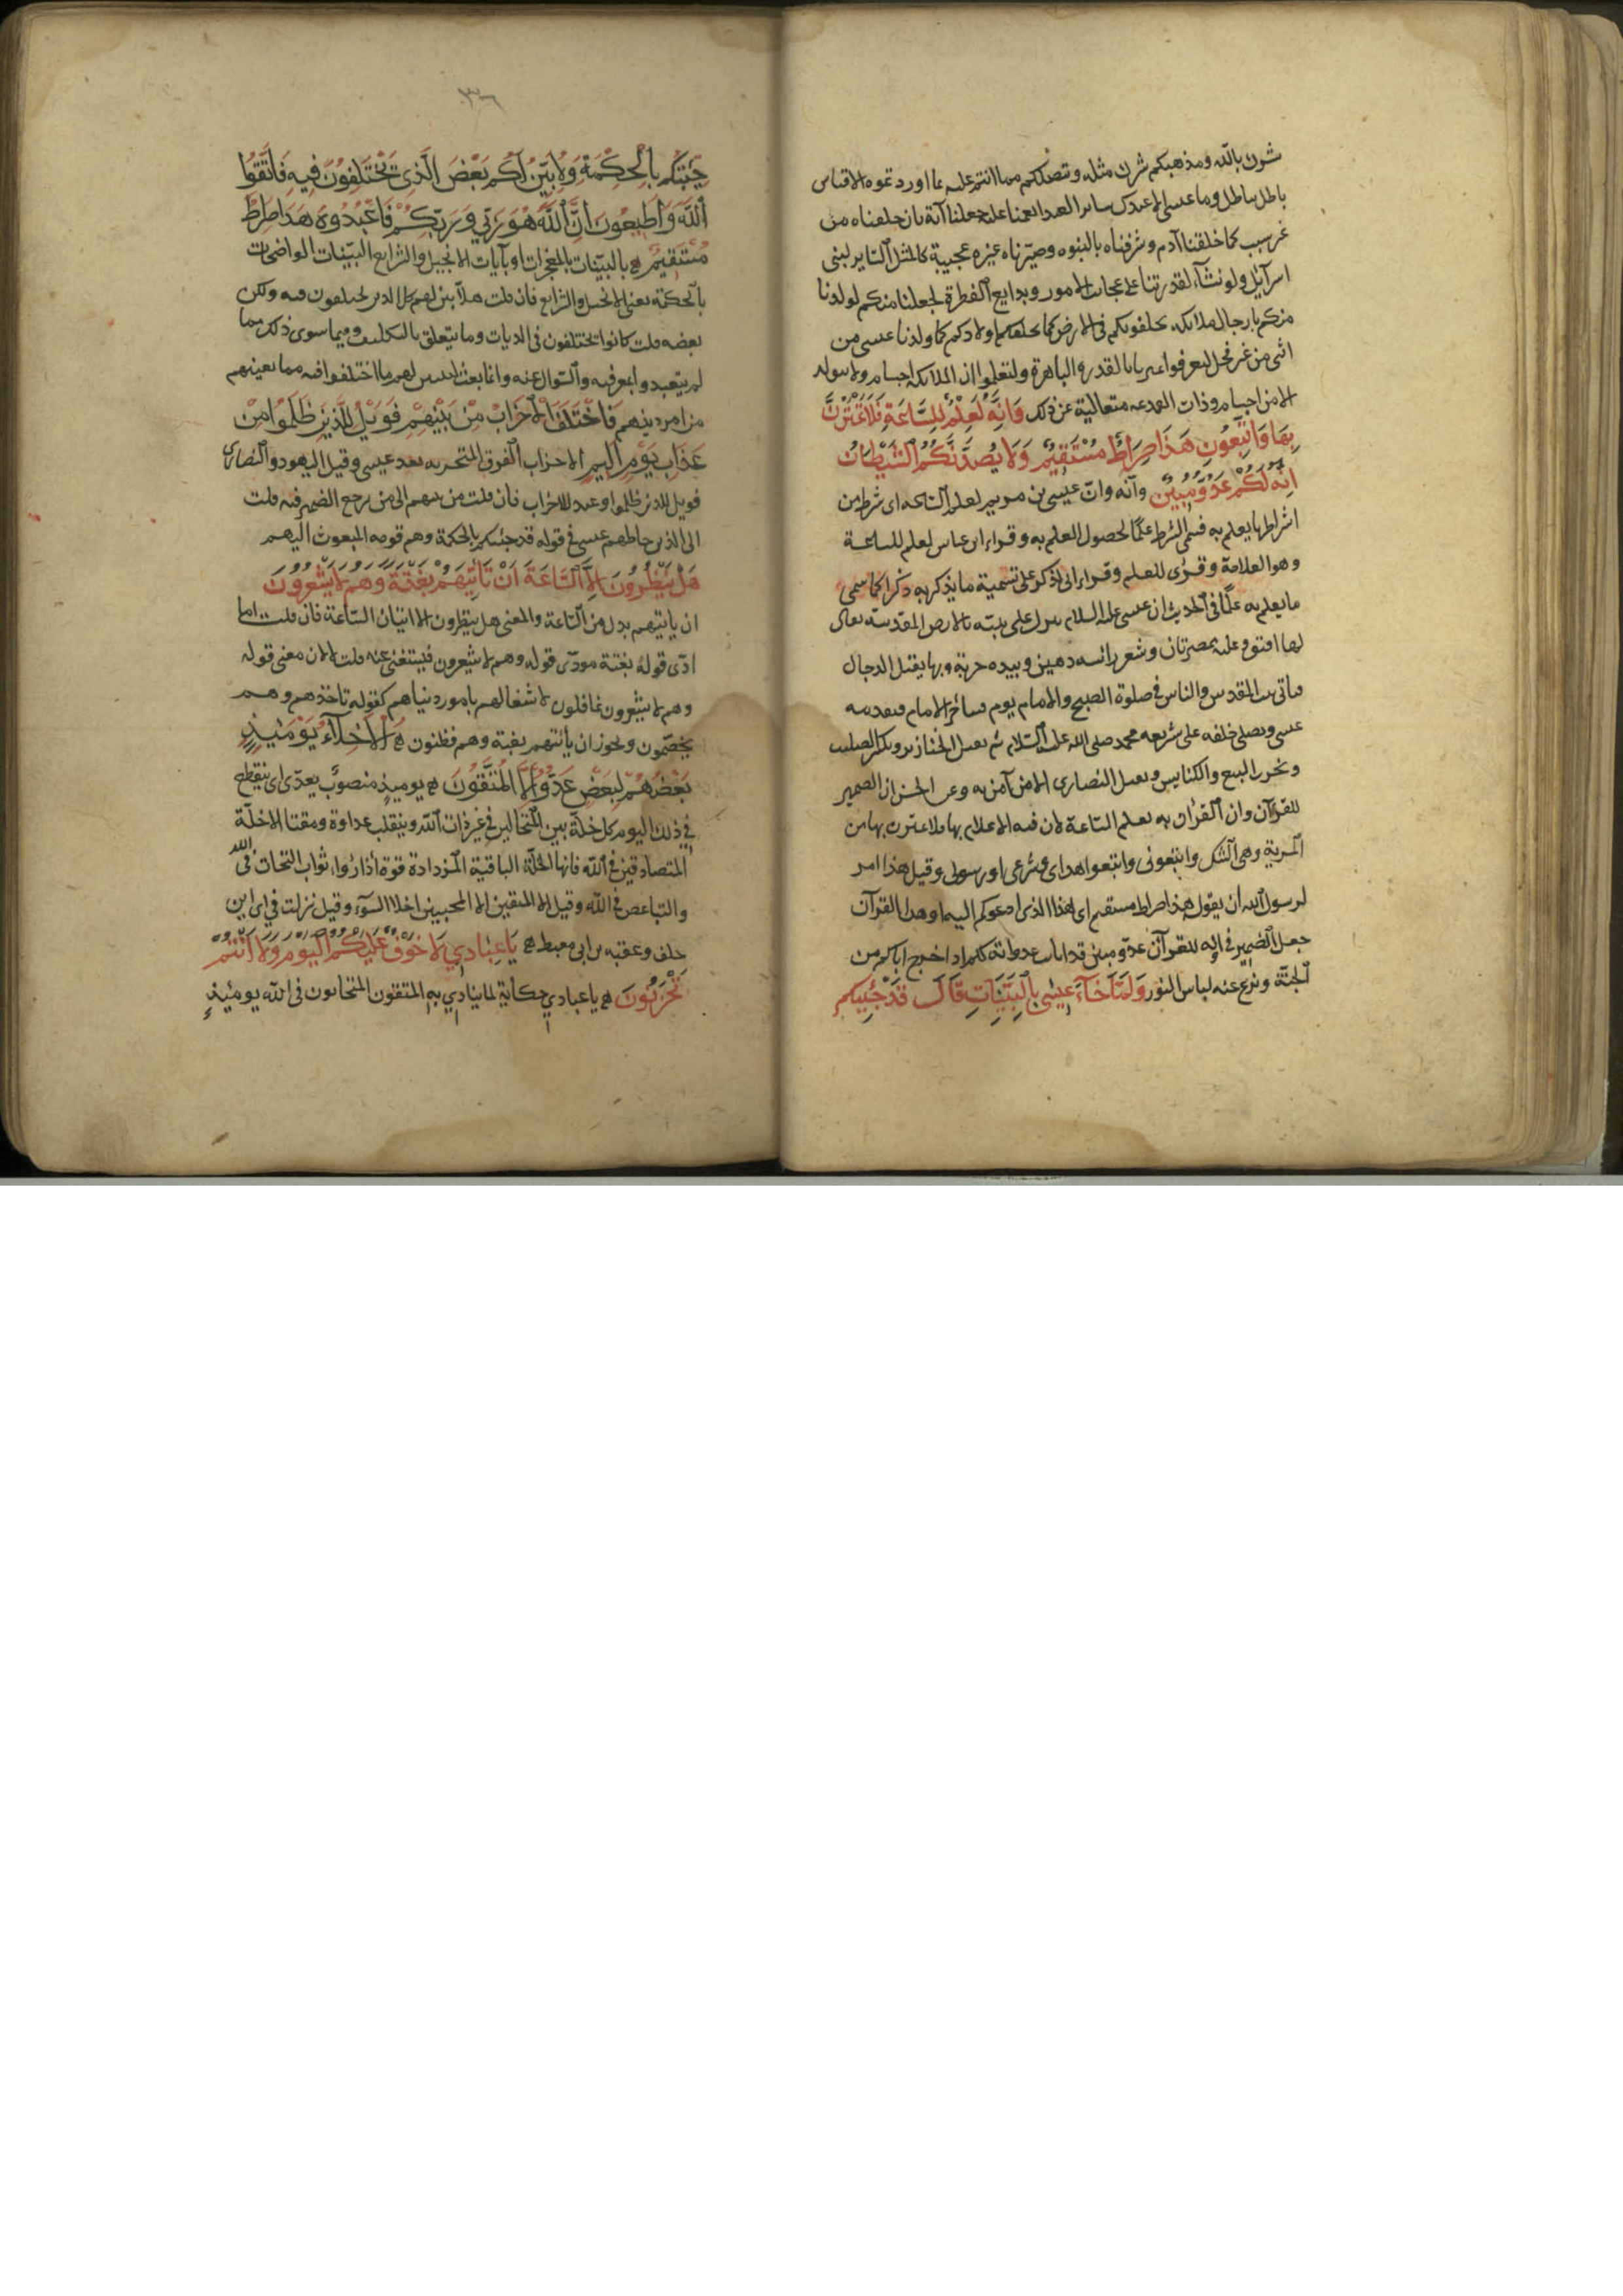 شرك بالله ومذهبكم شرك مثله وتنصلكم مما انتم عليه بما اوردتموه الا قياس
باطل بباطل وما عيسى الا عبد كسائر العبيد انعمنا عليه جعلناه آية بان خلقناه من
غير سبب كما خلقنا آدم وشرفناه بالنبوه وصيرناه عبره عجيبة كالمثل السائر لبنى
اسرآئيل ولو نشآء لقدرتنا على عجائب الامور وبدايع الفطرة لجعلنا منكم لولدنا
منكم يا رجال ملائكه يخلفونكم فى الارض كما يخلفكم اولادكم كما ولدنا عيسى من
انثى من غير فحل لتعرفوا تميزنا بالقدرة الباهرة ولتعلموا ان الملائكة اجسام ولا تتولد
الا من اجسام وذات القديم متعالية عن ذلك وَاِنَّهُ لَعِلْمٌ لِلسَّاعَةِ فَلَا تَمْتَرُنَّ
بِهَا وَاتَّبِعُونِ هَذَا صِرَاطٌ مُسْتَقِيمٌ وَلَا يَصُدَّنَّكُمُ الشَّيْطَانُ
اِنَّهُ لَكُمْ عَدُوٌّ مُبِينٌ وانه وان عيسى بن مريم لعلم الساعه اى شرط من
اشراطها يعلم به فسمى الشرط علمًا لحصول العلم به وقراء ابن عباس لعلم للساعة
وهو العلامة وقرئ للعلم وقراء ابى لذكر على تسمية ما يذكر به ذكرا كما سمى
ما يعلم به علمًا فى الحديث ان عيسى عليه السلام ينزل على ثنية بالارض المقدسة يقال
لها افيق وعليه ممصرتان وشعر رأسه دهين وبيده حربة وبها يقتل الدجال
فياتى بيت المقدس والناس فى صلوة الصبح والامام يؤم فيتأخر الامام فيقدمه
عيسى ويصلى خلفه على شريعه محمد صلى الله عليه السلام ثم يقتل الخنازير ويكسر الصليب
ويخرب البيع والكنايس ويقتل النصارى الا من آمن به وعن الحسن ان الضمير
للقرآن وان القرآن به يعلم الساعة لان فيه الاعلام بها فلا تمترن بها من
المرية وهى الشك واتبعونى واتبعوا هداى وشرعى او رسولى وقيل هذا امر
لرسول الله ان يقوله هذا صراط مستقيم اى هذا الذى ادعوكم اليه او هذا القرآن
جعل الضمير فى انه للقرآن عدو مبين قد ابان عدواته لكم اذ اخرج اباكم من
الجنة ونزع عنه لباس النور وَلَمَّا جَآءَ عِيسَى بِالْبَيِّنَاتِ قَالَ قَدْ جِئْتُكُمْ
٣٦
جِئْتُكُمْ بِالْحِكْمَةِ وَلِاُبَيِّنَ لَكُمْ بَعْضَ الَّذِى تَخْتَلِفُونَ فِيهِ فَاتَّقُوا
اللهَ وَاَطِيعُونِ اِنَّ اللهَ هُوَ رَبِّي وَرَبُّكُمْ فَاعْبُدُوهُ هَذَا صِرَاطٌ
مُسْتَقِيمٌ بالبينات بالمعجزات او بآيات الانجيل والشرايع البينات الواضحات
بالحكمة يعنى الانجيل والشرايع فان قلت هلا بين لهم كل الذى يختلفون فيه ولكن
بعضه قلت كانوا يختلفون فى الديات وما يتعلق بالتكليف وفيما سوى ذلك مما
لم يتعبدوا بمعرفته والسوال عنه وانما بعث ليبين لهم ما اختلفوا فيه مما يعنيهم
من امر دينهم فَاخْتَلَفَ الْاَحْزَابُ مِنْ بَيْنِهِمْ فَوَيْلٌ لِلَّذِينَ ظَلَمُوا مِنْ
عَذَابِ يَوْمٍ اَلِيمٍ الاحزاب الفرق المتحزبه بعد عيسى وقيل اليهود والنصارى
فويل للذين ظلموا وعيد للاحزاب فان قلت من بينهم الى من يرجع الضمير فيه قلت
الى الذين خاطبهم عيسى فى قوله قد جئتكم بالحكمة وهم قومه المبعوث اليهم
هَلْ يَنْظُرُونَ اِلَّا السَّاعَةَ اَنْ تَاْتِيَهُمْ بَغْتَةً وَهُمْ لَا يَشْعُرُونَ
ان ياتيهم بدل من الساعة والمعنى هل ينظرون الا اتيان الساعة فان قلت اما
ادى قوله بغتة مودى قوله وهم لا يشعرون فيستغنى عنه قلت لا لان معنى قوله
وهم لا يشعرون غافلون لاشتغالهم بامور دنياهم كقوله تاخذهم وهم
يخصمون ويجوز ان يأتيهم بغتة وهم فطنون اَلْاَخِلَّآءُ يَوْمَئِذٍ
بَعْضُهُمْ لِبَعْضٍ عَدُوٌّ اِلَّا الْمُتَّقُونَ يوميذ منصوب بعدو اى ينقطع
فى ذلك اليوم كل خلة بين المتخالين فى غير ذات الله وينقلب عداوة ومقتا الا خلة
المتصادقين فى الله فانها الخلة الباقية المزدادة قوة اذا راوا ثواب التحاب فى الله
والتباغض فى الله وقيل الا المتقين الا المجتنبين اخلا السوء وقيل نزلت فى ابى ابن
خلف وعقبه بن ابى معيط يَا عِبَادِي لَا خَوْفٌ عَلَيْكُمُ الْيَوْمَ وَلَا اَنْتُمْ
تَحْزَنُونَ يا عبادي حكاية لما ينادي به المتقون المتحابون فى الله يومئيذٍ